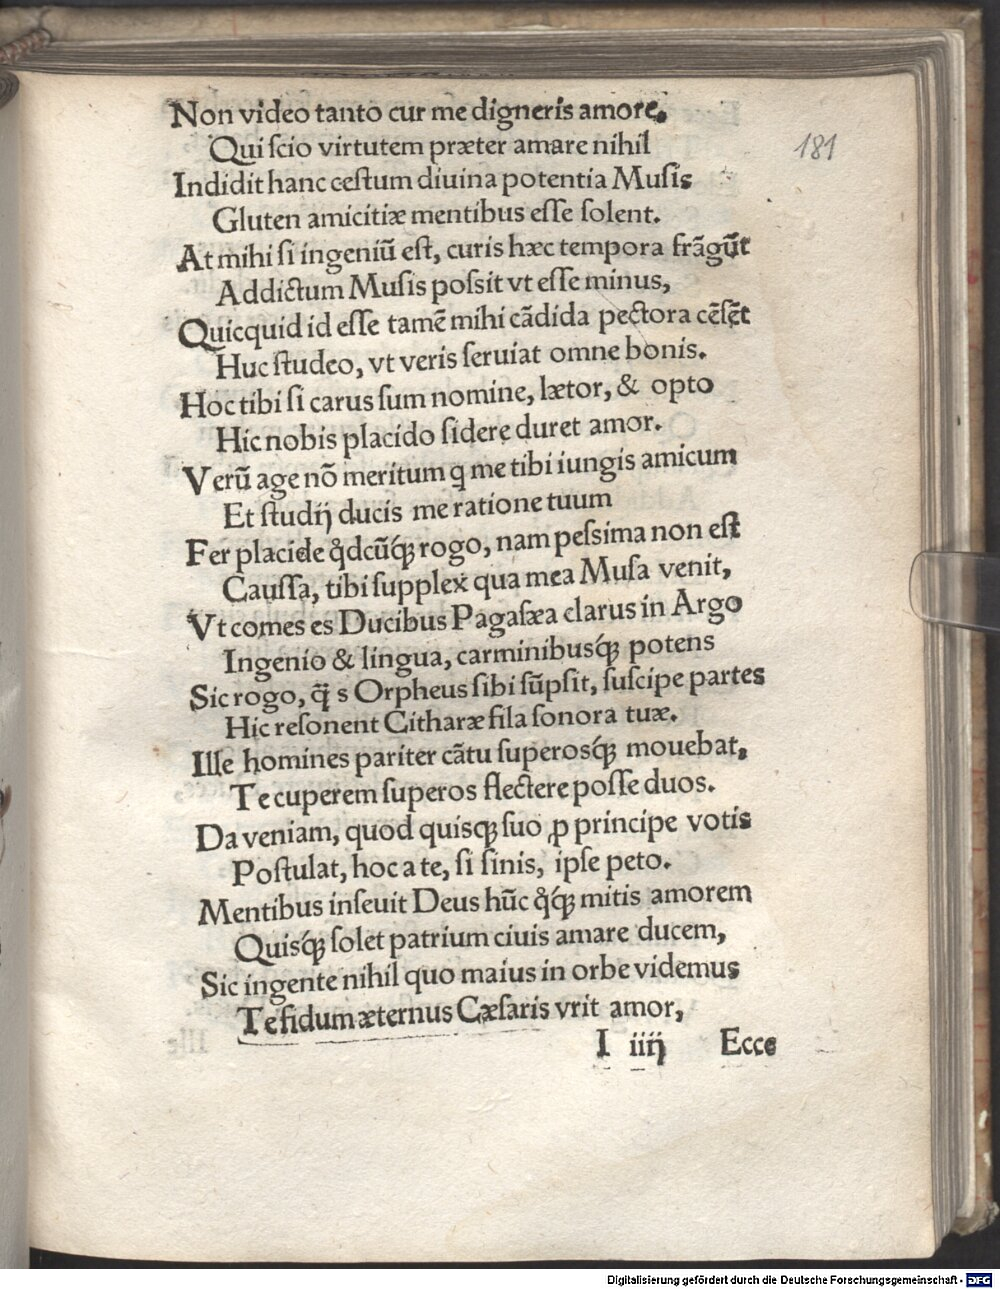 Non video tanto cur me digneris amore.
Qui ſcio virtutem præter amare nihil
Indidit hanc ceſtum diuina potentia Muſis
Gluten amicitiæ mentibus eſſe ſolent.
At mihi ſi ingeniũ eſt, curis hæc tempora frãgũt
Addictum Muſis poſsit vt eſſe minus,
Quicquid id eſſe tamẽ mihi cãdida pectora cẽſẽt
Huc ſtudeo, vt veris ſeruiat omne bonis.
Hoc tibi ſi carus ſum nomine, lætor, & opto
Hic nobis placido ſidere duret amor.
Verũ age nõ meritum q me tibi iungis amicum
Et ſtudij ducis me ratione tuum
Fer placide qͥdcũqꝫ rogo, nam peſsima non eſt
Cauſſa, tibi ſupplex qua mea Muſa venit,
Vt comes es Ducibus Pagaſæa clarus in Argo
Ingenio & lingua, carminibusqꝫ potens
Sic rogo, q̃ s Orpheus ſibi ſũpſit, ſuſcipe partes
Hic reſonent Citharæ fila ſonora tuæ.
Ille homines pariter cãtu ſuperosqꝫ mouebat,
Te cuperem ſuperos flectere poſſe duos.
Da veniam, quod quisqꝫ ſuo ꝓ principe votis
Poſtulat, hoc a te, ſi ſinis, ipſe peto.
Mentibus inſeuit Deus hũc qͥqꝫ mitis amorem
Quisqꝫ ſolet patrium ciuis amare ducem,
Sic ingente nihil quo maius in orbe videmus
Te fidum æternus Cæſaris vrit amor,
I iiij Ecce
181
Digitalisierung gefördert durch die Deutsche Forschungsgemeinschaft - DFG